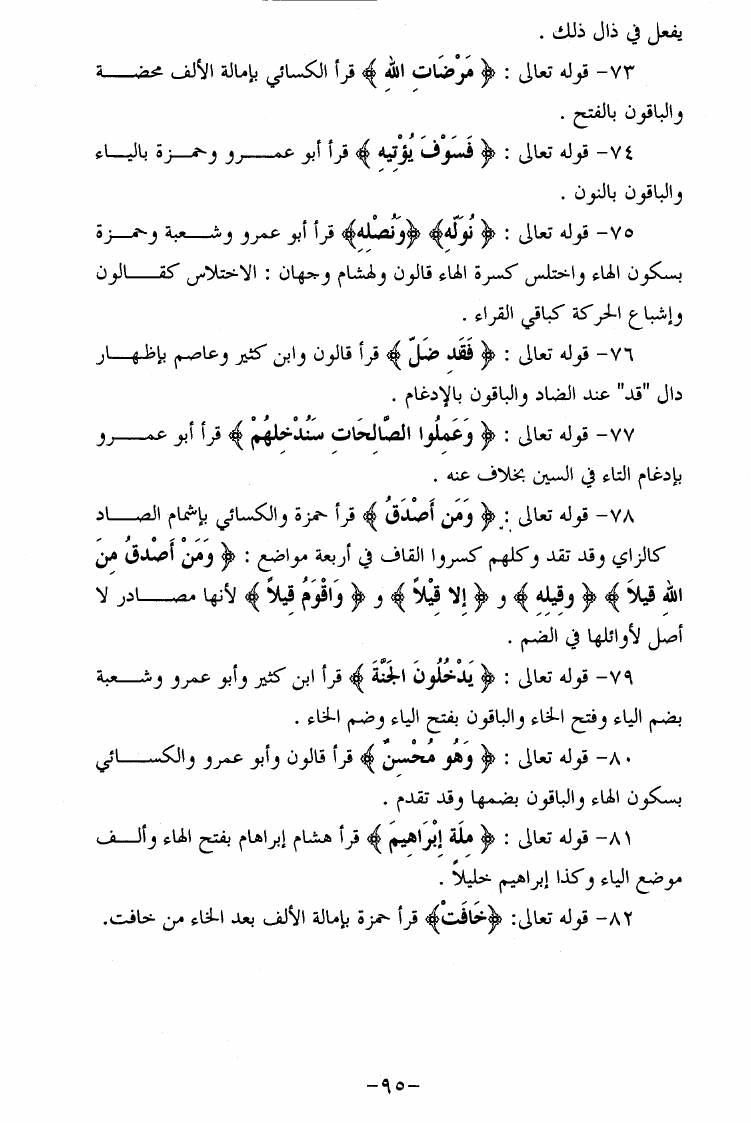 يفعل في ذال ذلك .
٧٣- قوله تعالى : ﴿ مَرْضَاتِ اللهِ ﴾ قرأ الكسائي بإمالة الألف محضة
والباقون بالفتح .
٧٤- قوله تعالى : ﴿ فَسَوْفَ يُؤْتِيهِ ﴾ قرأ أبو عمرو وحمزة بالياء
والباقون بالنون .
٧٥- قوله تعالى : ﴿ نُوَلِّهِ﴾ ﴿وَنُصْلِهِ﴾ قرأ أبو عمرو وشعبة وحمزة
بسكون الهاء واختلس كسرة الهاء قالون ولهشام وجهان : الاختلاس كقالون
وإشباع الحركة كباقي القراء .
٧٦- قوله تعالى : ﴿ فَقَدِ ضَلَّ ﴾ قرأ قالون وابن كثير وعاصم بإظهار
دال "قد" عند الضاد والباقون بالإدغام .
٧٧- قوله تعالى : ﴿ وَعَمِلُوا الصَّالِحَاتِ سَنُدْخِلُهُمْ ﴾ قرأ أبو عمرو
بإدغام التاء في السين بخلاف عنه .
٧٨- قوله تعالى : ﴿ وَمَن أَصْدَقُ ﴾ قرأ حمزة والكسائي بإشمام الصاد
كالزاي وقد تقد وكلهم كسروا القاف في أربعة مواضع : ﴿ وَمَنْ أَصْدقُ مِنَ
اللهِ قِيلاً ﴾ ﴿ وقِيلِهِ ﴾ و ﴿ إلا قِيْلاً ﴾ و ﴿ وَاقْوَمُ قِيلاً ﴾ لأنها مصادر لا
أصل لأوائلها في الضم .
٧٩- قوله تعالى : ﴿ يَدْخُلُونَ الجَنَّةَ ﴾ قرأ ابن كثير وأبو عمرو وشعبة
بضم الياء وفتح الخاء والباقون بفتح الياء وضم الخاء .
٨٠- قوله تعالى : ﴿ وَهُو مُحْسِنٌ ﴾ قرأ قالون وأبو عمرو والكسائي
بسكون الهاء والباقون بضمها وقد تقدم .
٨١- قوله تعالى : ﴿ مِلَةِ إِبْرَاهِيمَ ﴾ قرأ هشام إبراهام بفتح الهاء وألف
موضع الياء وكذا إبراهيم خليلاً .
٨٢- قوله تعالى: ﴿خَافَتْ﴾ قرأ حمزة بإمالة الألف بعد الخاء من خافت.
-٩٥-